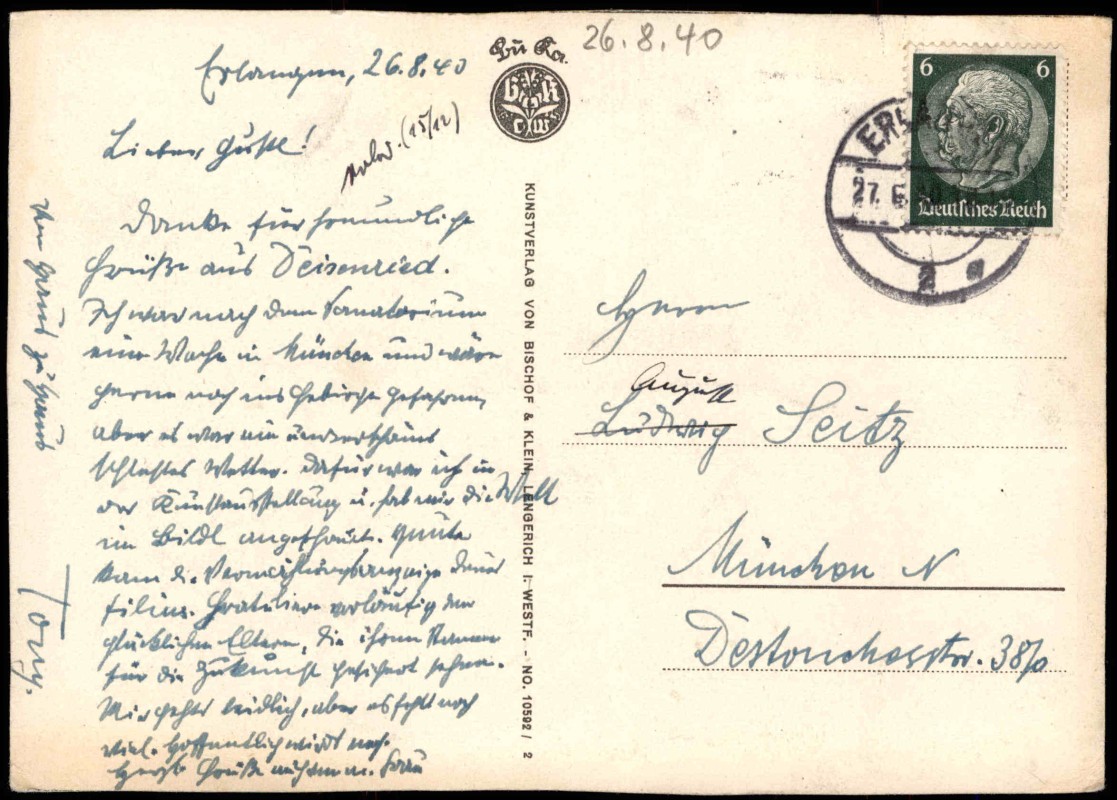 26.8.40
Bü Ka.
B K
L W
Erlangen, 26.8.40
Lieber Gustl!
(15/12)
Danke für freundliche
Grüße aus Deisenried.
Ich war nach dem Sanatorium
eine Woche in München und wäre
gerne noch ins Gebirge gefahren,
aber es war ein
schlechtes Wetter. Dafür war ich in
der Kunstausstellung u. hab mir die Welt
im Bildl angeschaut. Heute
kam die Vermählungsanzeige Deines
Filius. Gratuliere vorläufig den
glücklichen Eltern, die ihren Stamm
für die Zukunft gesichert sehen.
Mir gehts leidlich, aber es fehlt noch
viel. Hoffentlich wirds noch.
Herzl. Grüße auch an m. Frau
von Haus zu Haus
Tony.
KUNSTVERLAG VON BISCHOF & KLEIN, LENGERICH I. WESTF. - NO. 10592 / 2
6 6
Deutsches Reich
ERLA
27. 8.
2 a
Herrn
August
Ludwig Seitz
München N
Destouchesstr. 38/0